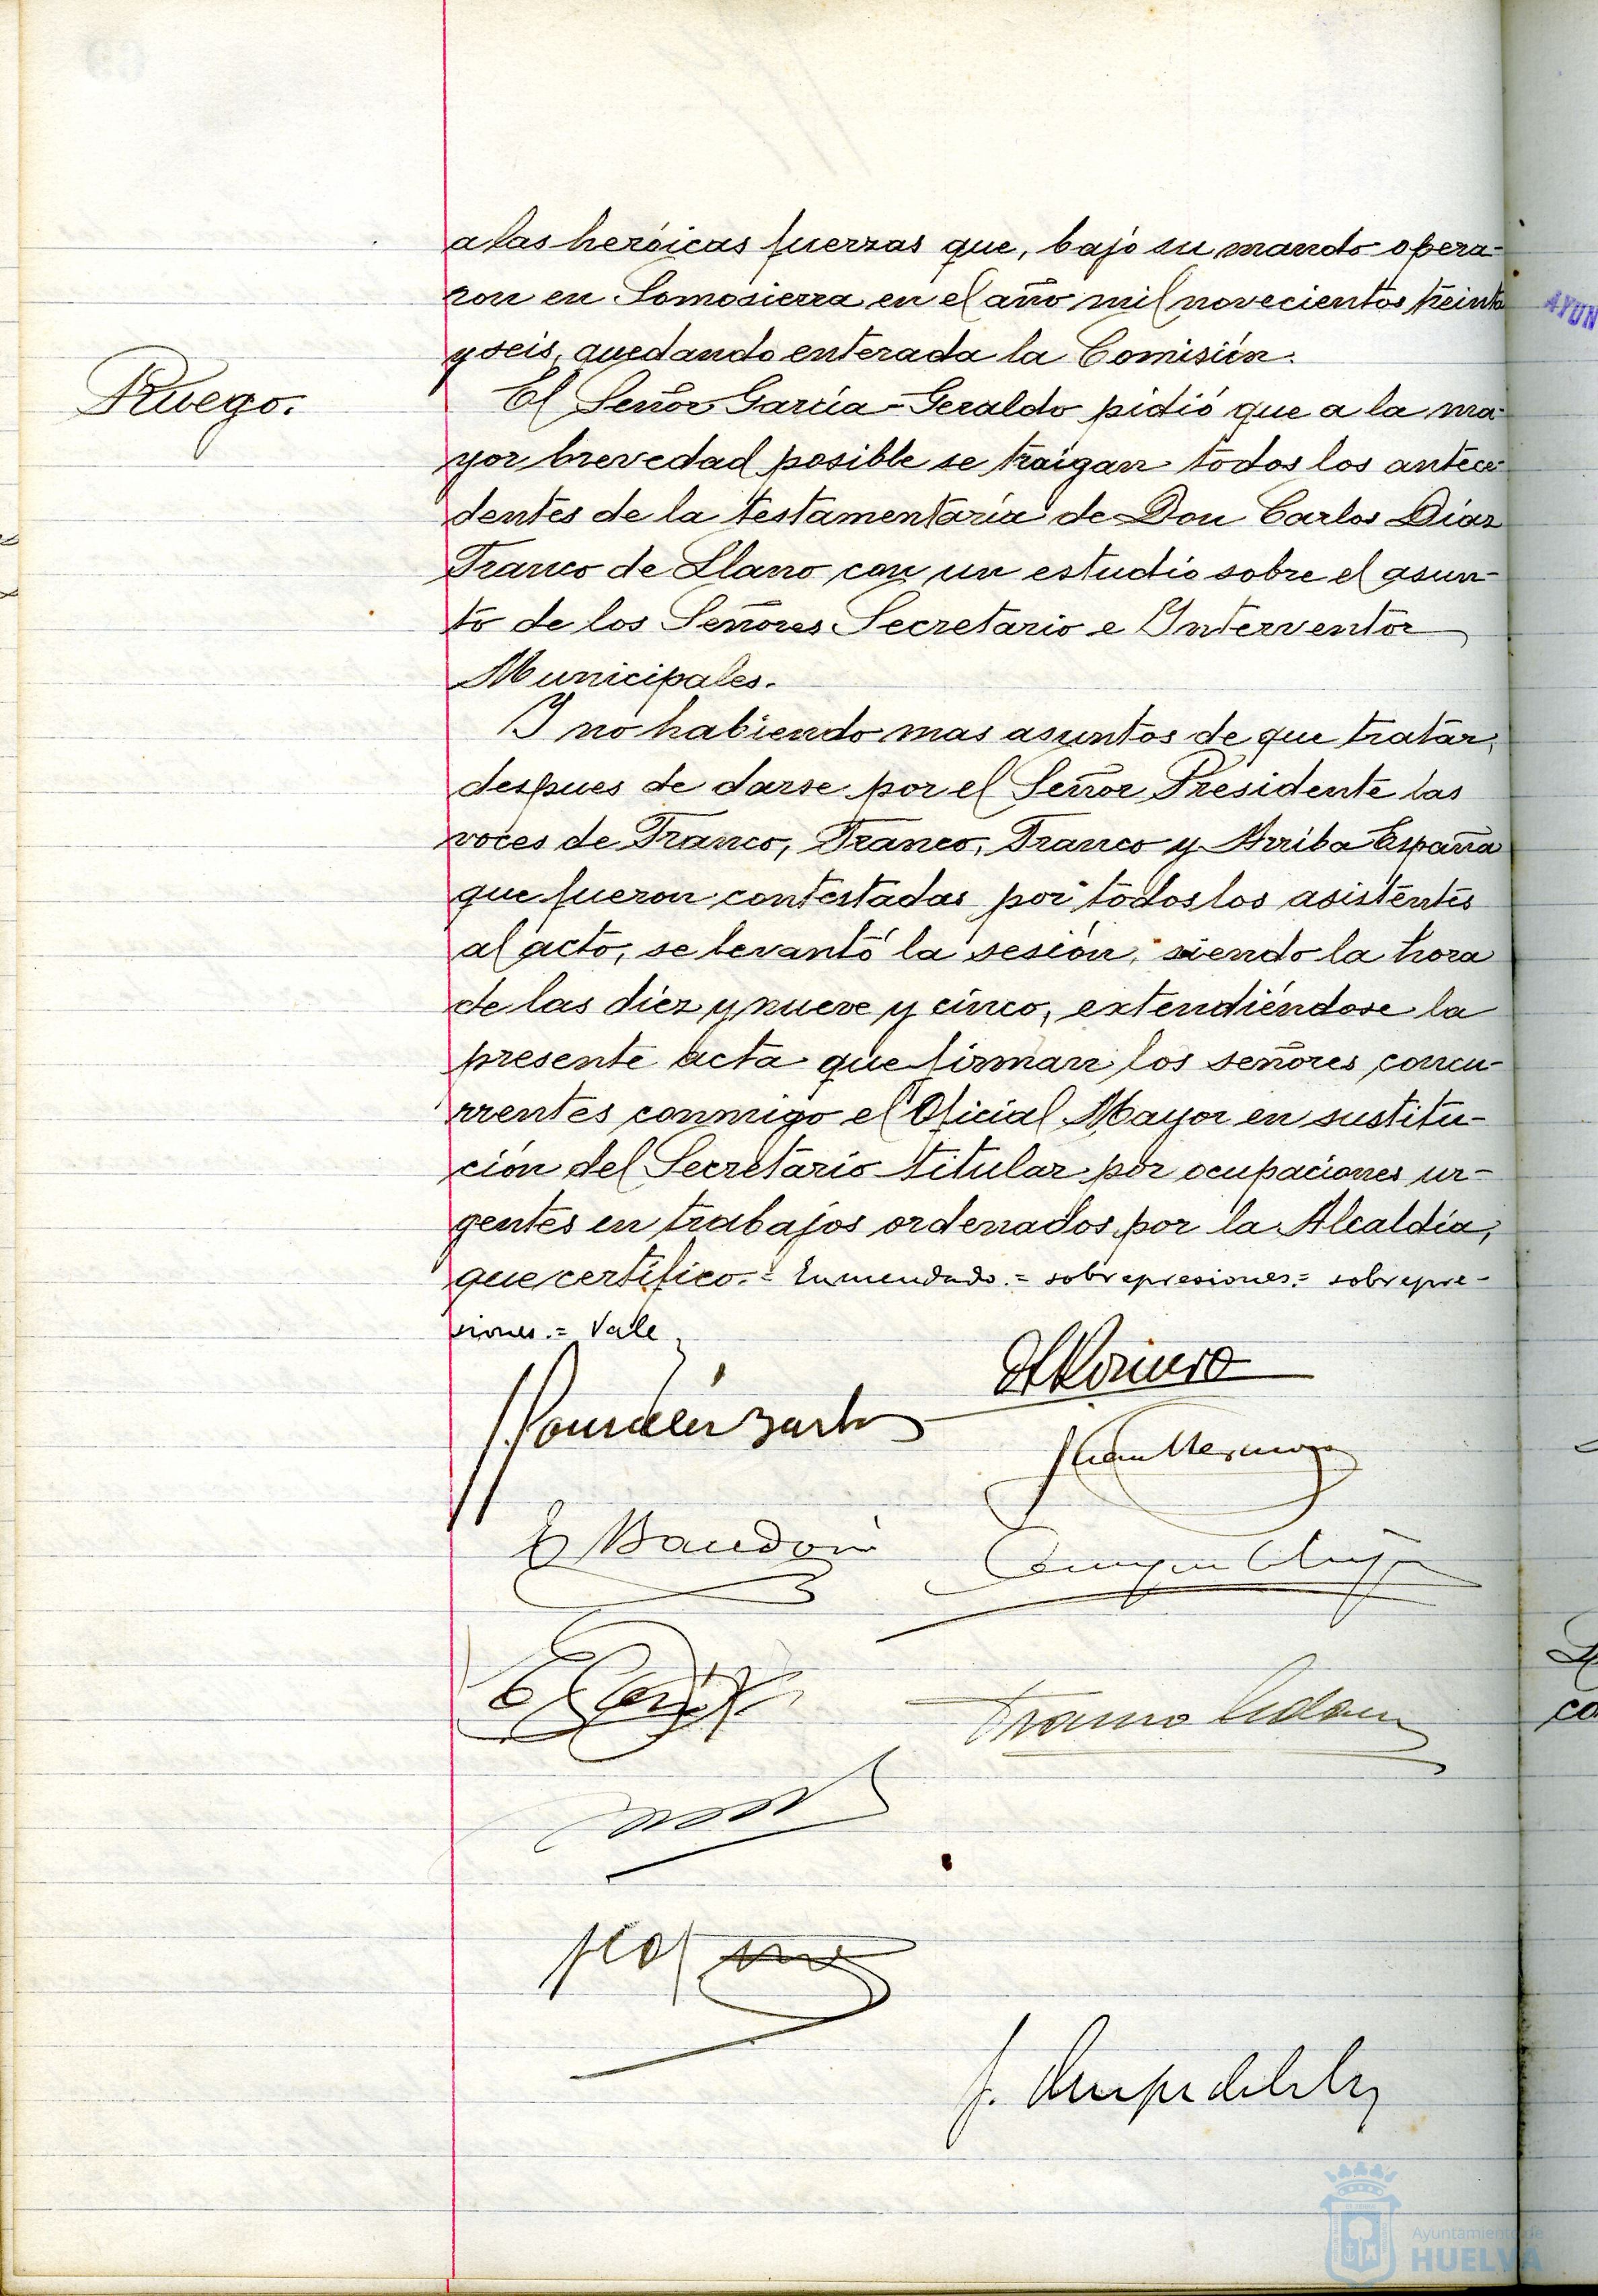 a las heróicas fuerzas que, bajo su mando opera-
ron en Somosierra en el año mil novecientos treinta
y seis, quedando enterada la Comisión.
Ruego.
El Señor García-Geraldo pidió que a la ma-
yor brevedad posible se traigan todos los antece-
dentes de la testamentaría de Don Carlos Díaz
Franco de Llano con un estudio sobre el asun-
to de los Señores Secretario e Interventor
Municipales.
Y no habiendo mas asuntos de que tratar,
despues de darse por el Señor Presidente las
voces de Franco, Franco, Franco y Arriba España
que fueron contestadas por todos los asistentes
al acto, se levantó la sesión, siendo la hora
de las diez y nueve y cinco, extendiéndose la
presente acta que firman los señores concu-
rrentes conmigo el Oficial Mayor en sustitu-
ción del Secretario titular por ocupaciones ur-
gentes en trabajos ordenados por la Alcaldía,
que certifico.= Enmendado.= sobrepresiones.= sobrepre-
siones.= Vale
AYUN
co
Ayuntamiento de
HUELVA